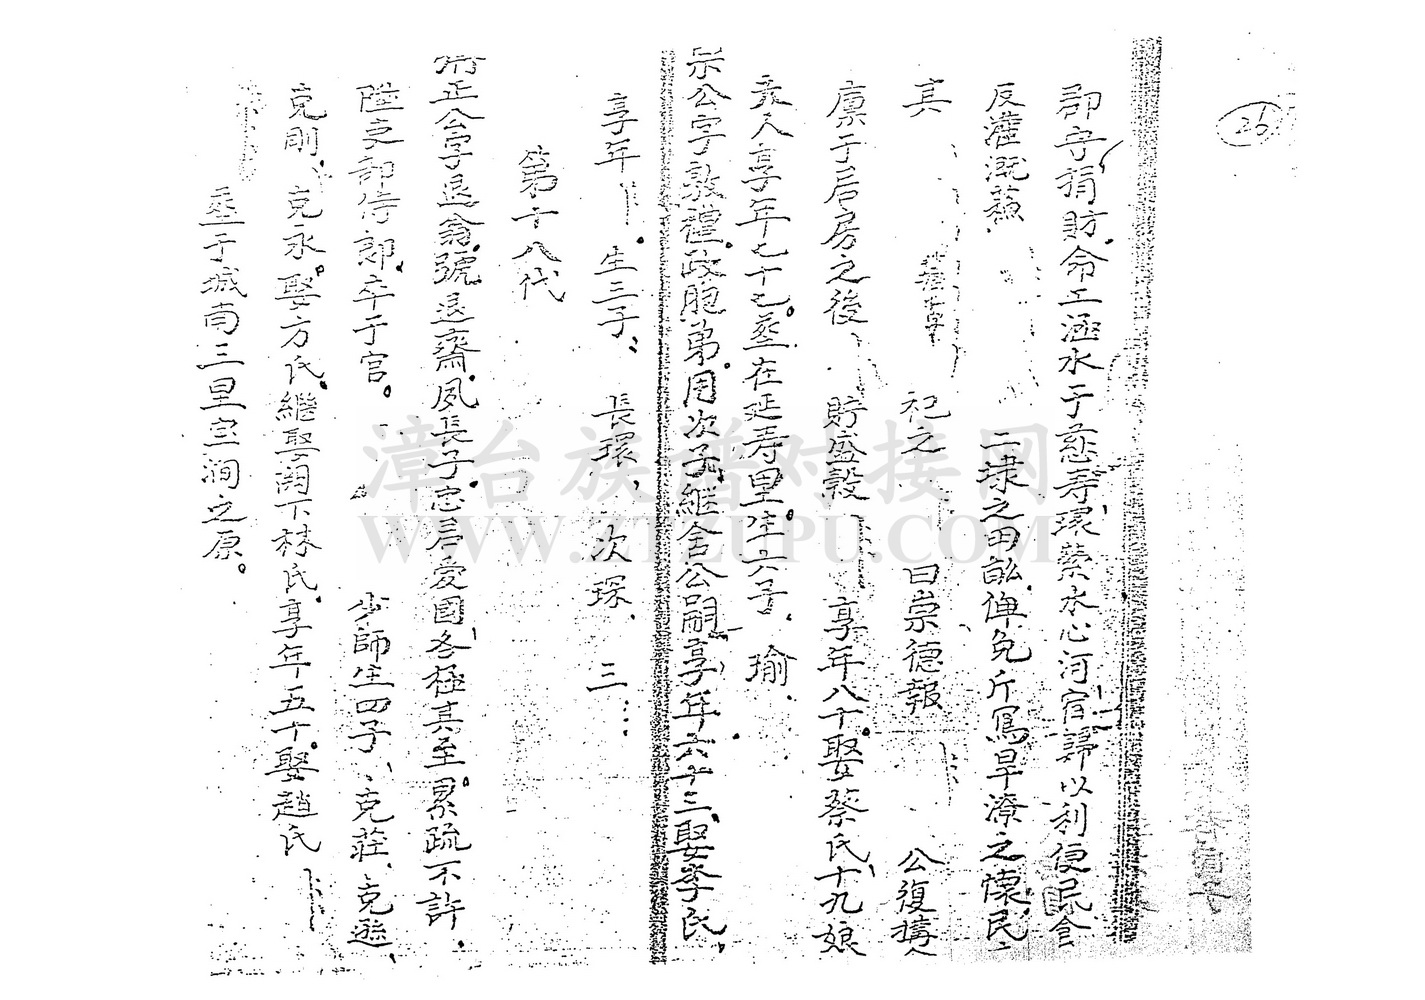 26
郡守捐財命工涵水于慈壽環縈水心河宿歸以利便民食
反灌溉蘓 二埭之田畝俾免斥舄旱潦之懷民
其 祀之 曰崇德報 公復搆
廪于后房之後 貯盛穀 享年八十娶蔡氏十九娘
夫人享年七十七葬在延寿里生六子瑜
宗公字敦禮政胞弟用次子継舍公嗣享年六十三娶李氏
享年 生三子 長環 次琛 三
第十八代
正公字退翁號退齋夙長子忠君愛國各極其至累疏不許
陞吏部侍郎卒于官 少師生四子克莊克遜
克剛 克永娶方氏継娶閩下林氏享年五十娶趙氏
葬于城南三里宝澗之原
漳台族谱对接网
WWW.ZTZUPU.COM